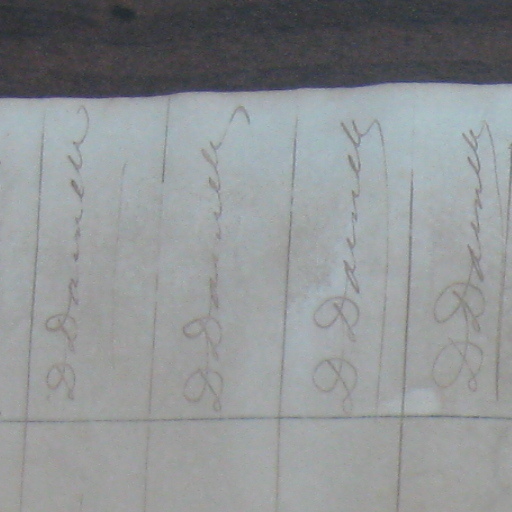 D Darnell
D Darnell
D Darnell
D Darnell